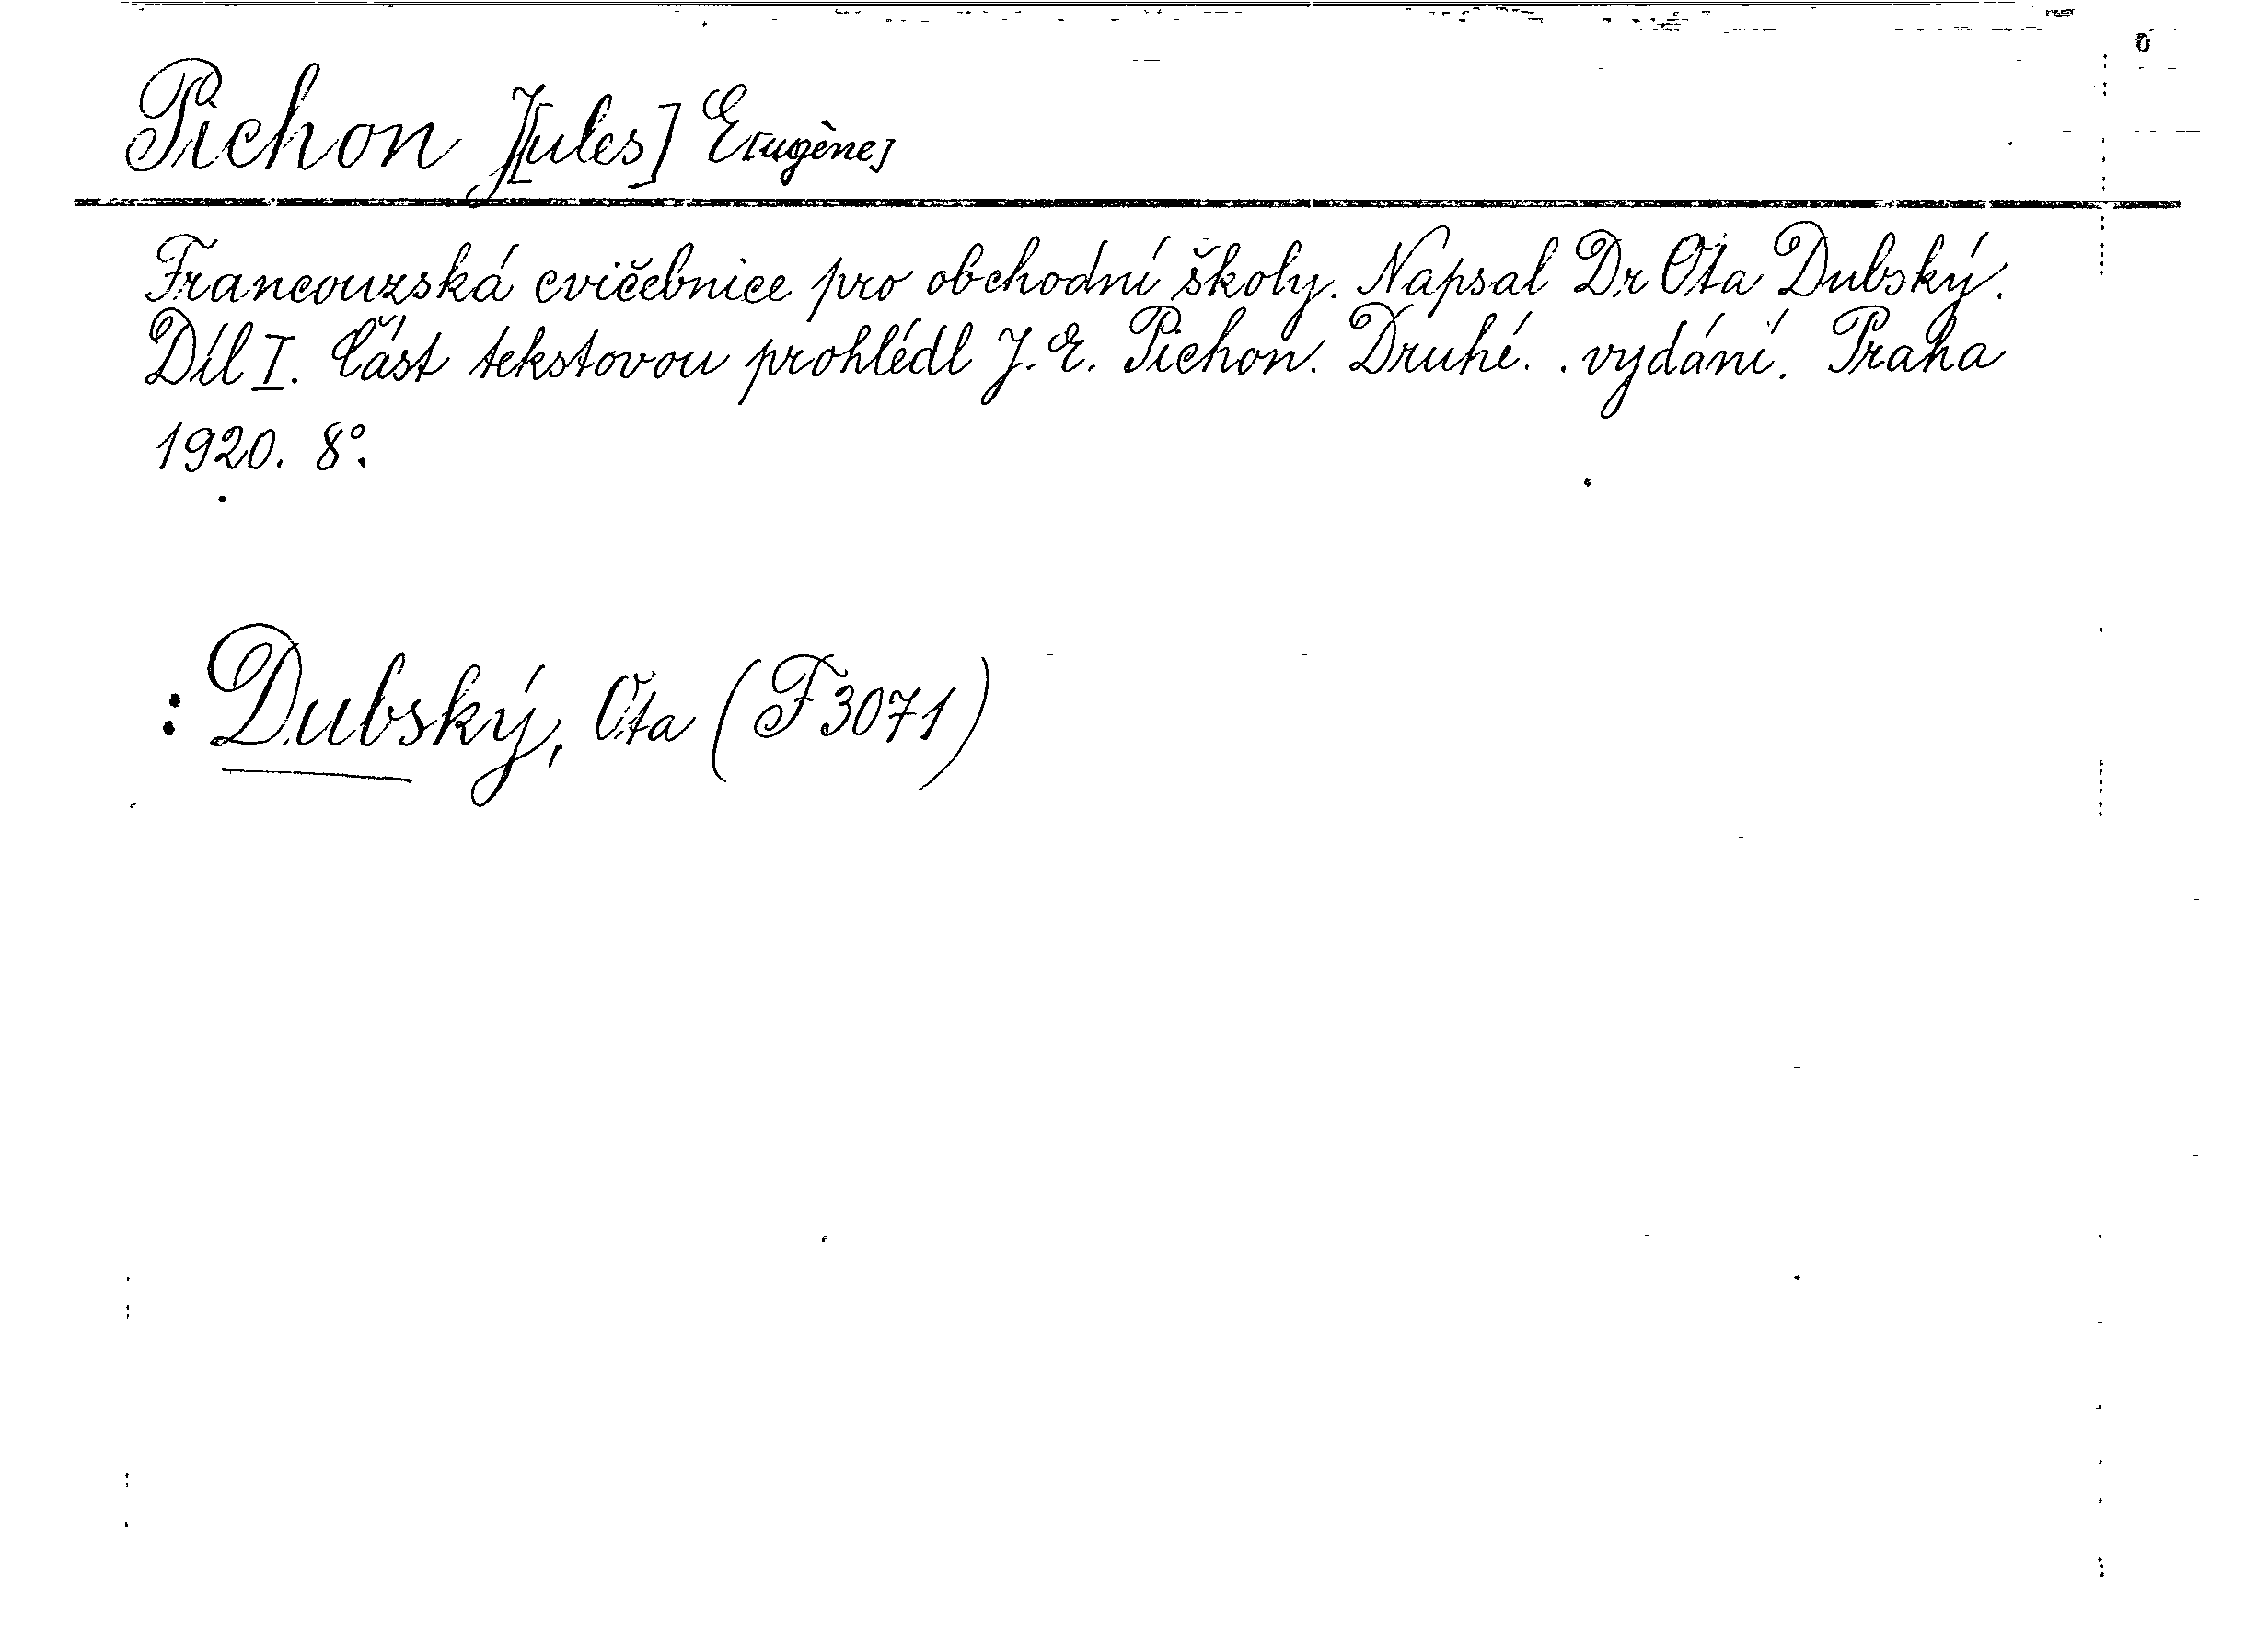 Pichon J[ules] E[ugène]
Francouzská cvičebnice pro obchodní školy. Napsal Dr Ota Dubský.
Díl I. Část tekstovou prohlédl J. E. Pichon. Druhé. . vydání. Praha
1920. 8°.
: Dubský, Ota (F 3071)